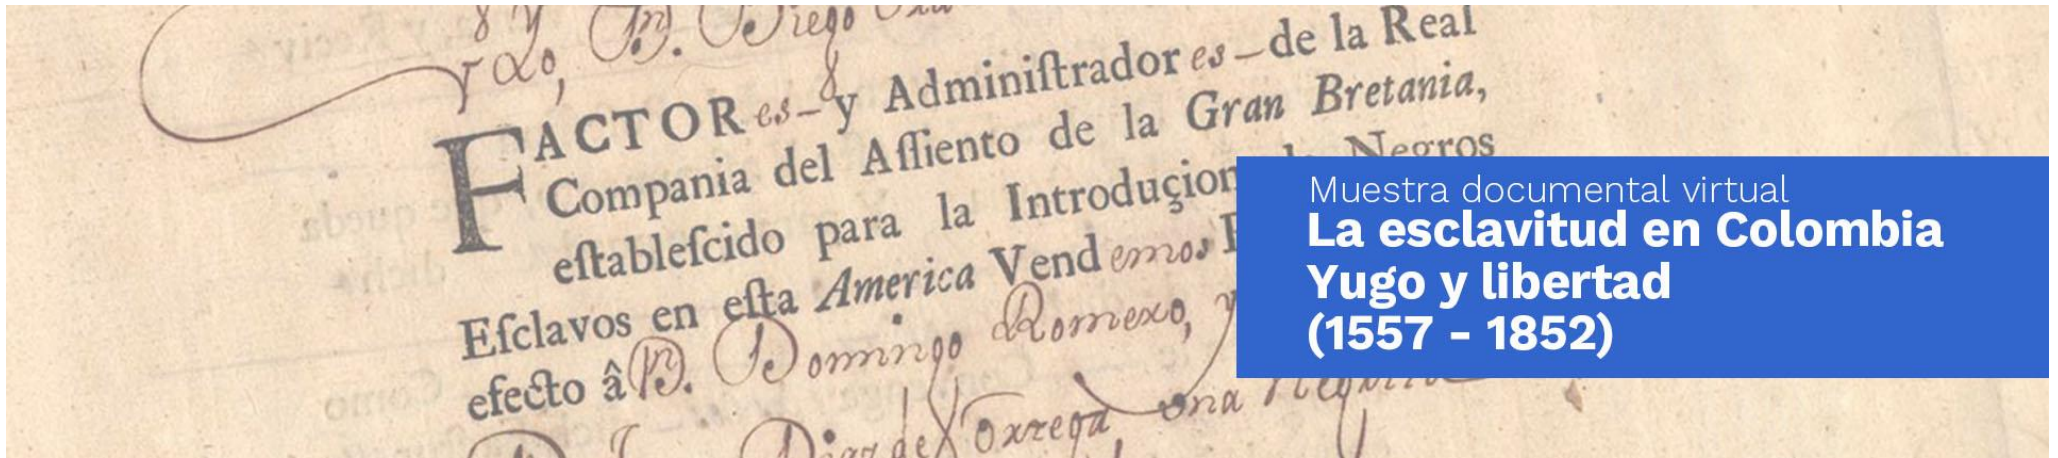 y Yo, Dn. Diego
FACTORes - y Adminiſtradores - de la Real
Compania del Aſſiento de la Gran Bretania,
eſtableſcido para la Introduçion de Negros
Eſclavos en eſta America Vendemos
efecto â Dn. Domingo Romero, y
una
Muestra documental virtual
La esclavitud en Colombia
Yugo y libertad
(1557 - 1852)